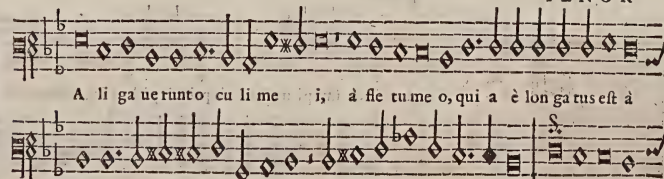 TENOR
A li ga ue runt o cu li me i, à fle tu me o, qui a è lon ga tus eſt à